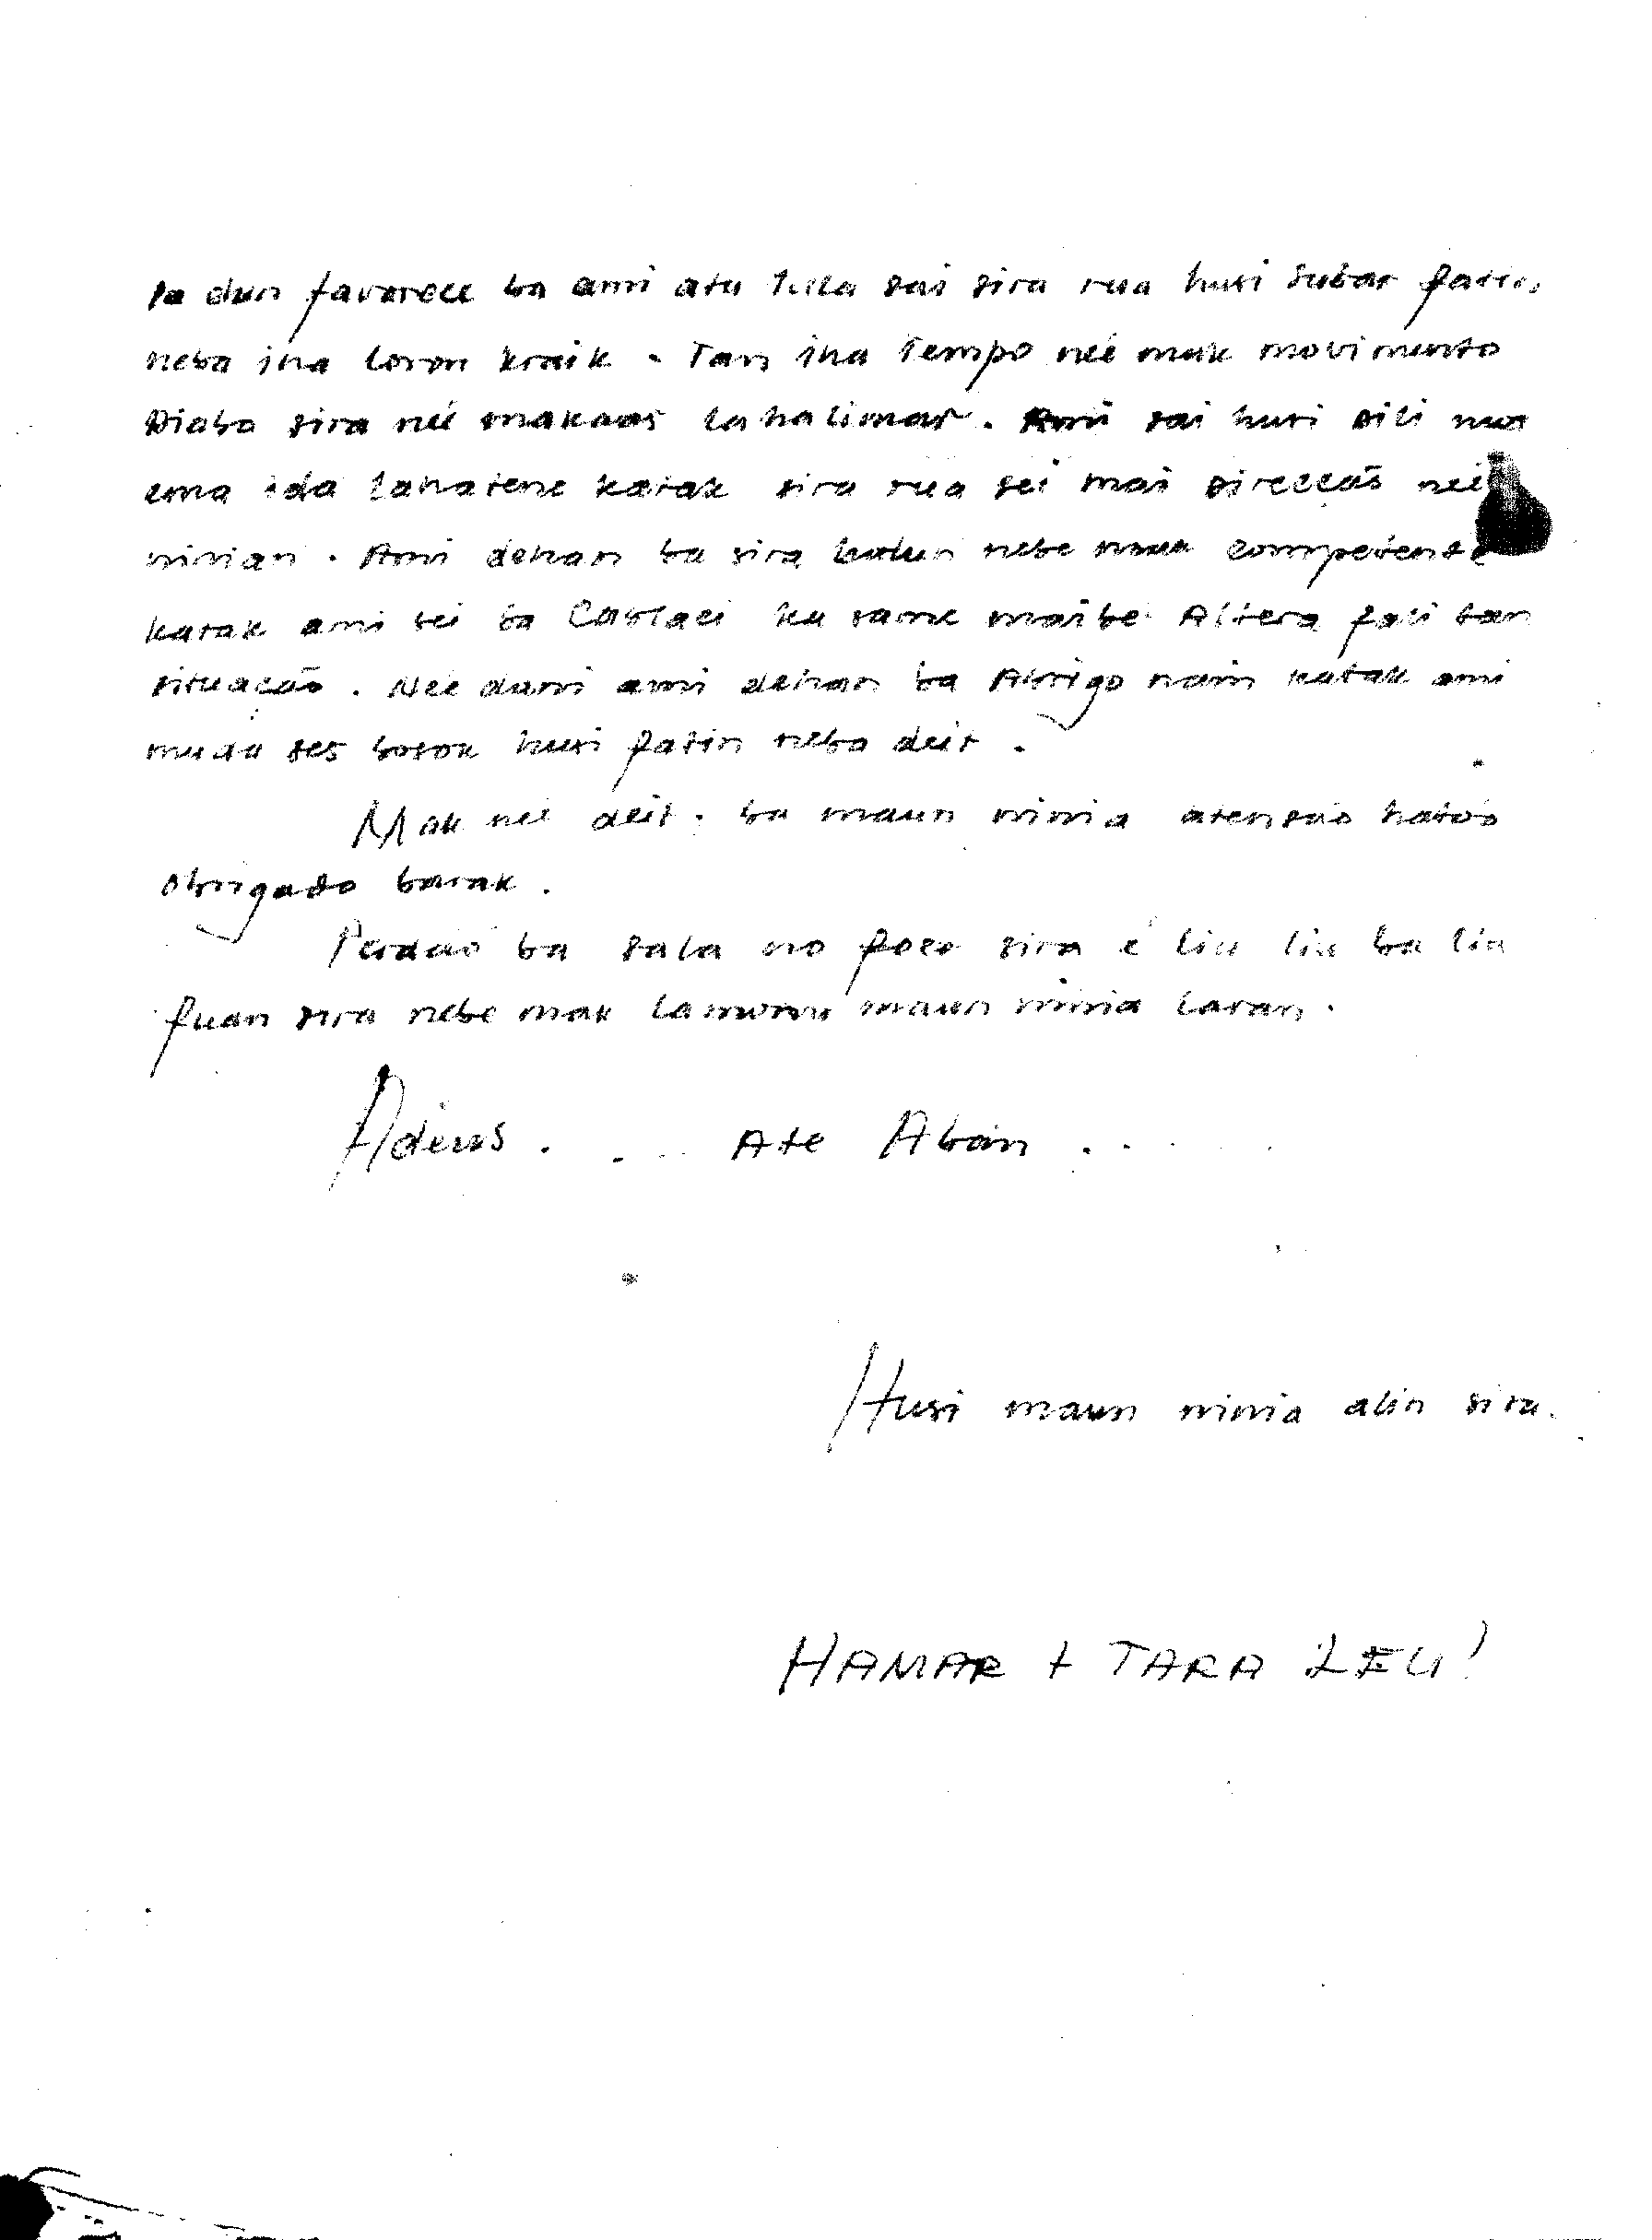 la dun favorece ba ami atu lula sai sira rua husi subar fatin
neba iha loron kraik. Tan iha Tempo neé mak movimento
Diabo sira neé makaas la halimar. Ami sai husi Dili mos
ema ida lahatene katak sira rua sei mai Direccão neé
ninian. Ami dehan ba sira balun nebe mak competente
katak ami sei ba Cablaci ku rame maibe Altera fali tan
situação. Neé duni ami dehan ba Abrigo nain katak ami
muda sesborok husi fatin neba deit.
Mak neé deit. ba maun ninia atensão hato'o
obrigado barak.
Perdão ba sala no foer sira é liu liu ba lia
fuan sira nebe mak lamonu maun ninia laran.
Adeus . . . . Ate Aban . . . . .
Husi maun ninia alin sira.
HAMAR + TARA LEU!